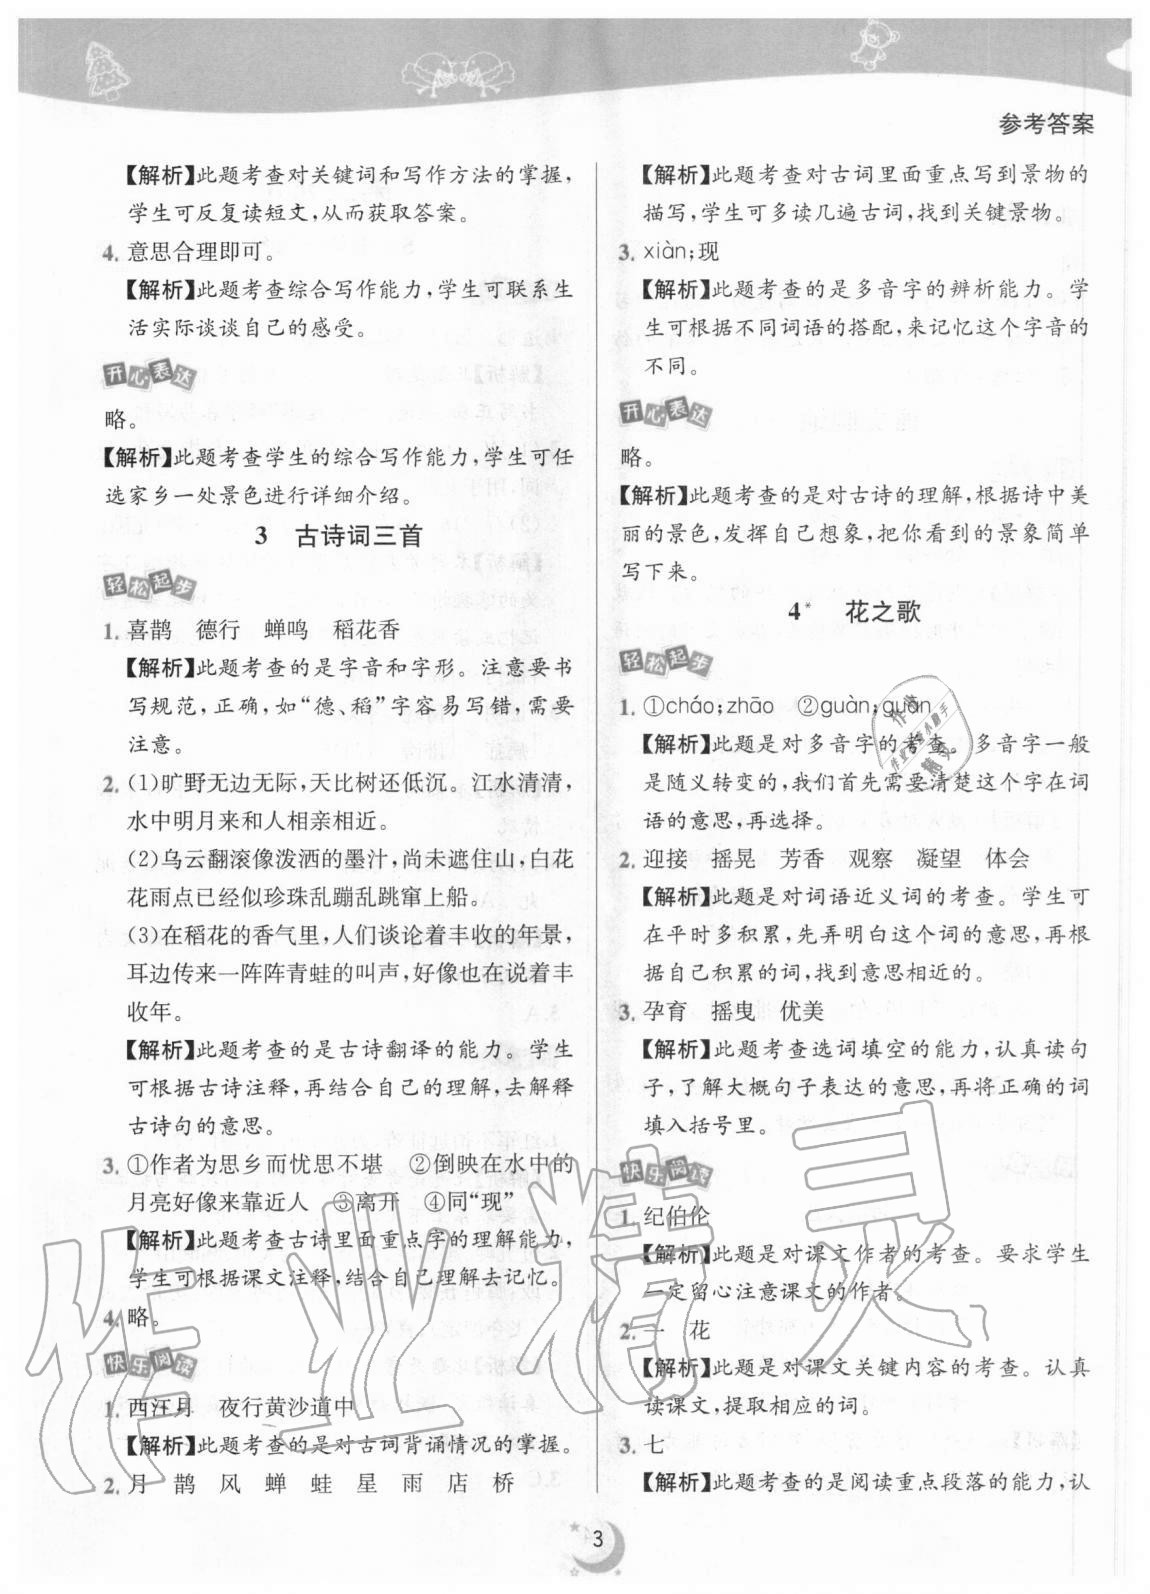 参考答案
【解析】此题考查对关键词和写作方法的掌握，
学生可反复读短文，从而获取答案。
4. 意思合理即可。
【解析】此题考查综合写作能力，学生可联系生
活实际谈谈自己的感受。
开心表达
略。
【解析】此题考查学生的综合写作能力，学生可任
选家乡一处景色进行详细介绍。
3　古诗词三首
轻松起步
1. 喜鹊　德行　蝉鸣　稻花香
【解析】此题考查的是字音和字形。注意要书
写规范，正确，如“德、稻”字容易写错，需要
注意。
2. (1)旷野无边无际，天比树还低沉。江水清清，
水中明月来和人相亲相近。
(2)乌云翻滚像泼洒的墨汁，尚未遮住山，白花
花雨点已经似珍珠乱蹦乱跳窜上船。
(3)在稻花的香气里，人们谈论着丰收的年景，
耳边传来一阵阵青蛙的叫声，好像也在说着丰
收年。
【解析】此题考查的是古诗翻译的能力。学生
可根据古诗注释，再结合自己的理解，去解释
古诗句的意思。
3. ①作者为思乡而忧思不堪　②倒映在水中的
月亮好像来靠近人　③离开　④同“现”
【解析】此题考查古诗里面重点字的理解能力，
学生可根据课文注释，结合自己理解去记忆。
4. 略。
快乐阅读
1. 西江月　夜行黄沙道中
【解析】此题考查的是对古词背诵情况的掌握。
2. 月　鹊　风　蝉　蛙　星　雨　店　桥
【解析】此题考查对古词里面重点写到景物的
描写，学生可多读几遍古词，找到关键景物。
3. xiàn；现
【解析】此题考查的是多音字的辨析能力。学
生可根据不同词语的搭配，来记忆这个字音的
不同。
开心表达
略。
【解析】此题考查的是对古诗的理解，根据诗中美
丽的景色，发挥自己想象，把你看到的景象简单
写下来。
4*　花之歌
轻松起步
1. ①cháo；zhāo　②guàn；guān
【解析】此题是对多音字的考查。多音字一般
是随义转变的，我们首先需要清楚这个字在词
语的意思，再选择。
2. 迎接　摇晃　芳香　观察　凝望　体会
【解析】此题是对词语近义词的考查。学生可
在平时多积累，先弄明白这个词的意思，再根
据自己积累的词，找到意思相近的。
3. 孕育　摇曳　优美
【解析】此题考查选词填空的能力，认真读句
子，了解大概句子表达的意思，再将正确的词
填入括号里。
快乐阅读
1. 纪伯伦
【解析】此题是对课文作者的考查。要求学生
一定留心注意课文的作者。
2. 一　花
【解析】此题是对课文关键内容的考查。认真
读课文，提取相应的词。
3. 七
【解析】此题考查的是阅读重点段落的能力，认
3
作业精灵